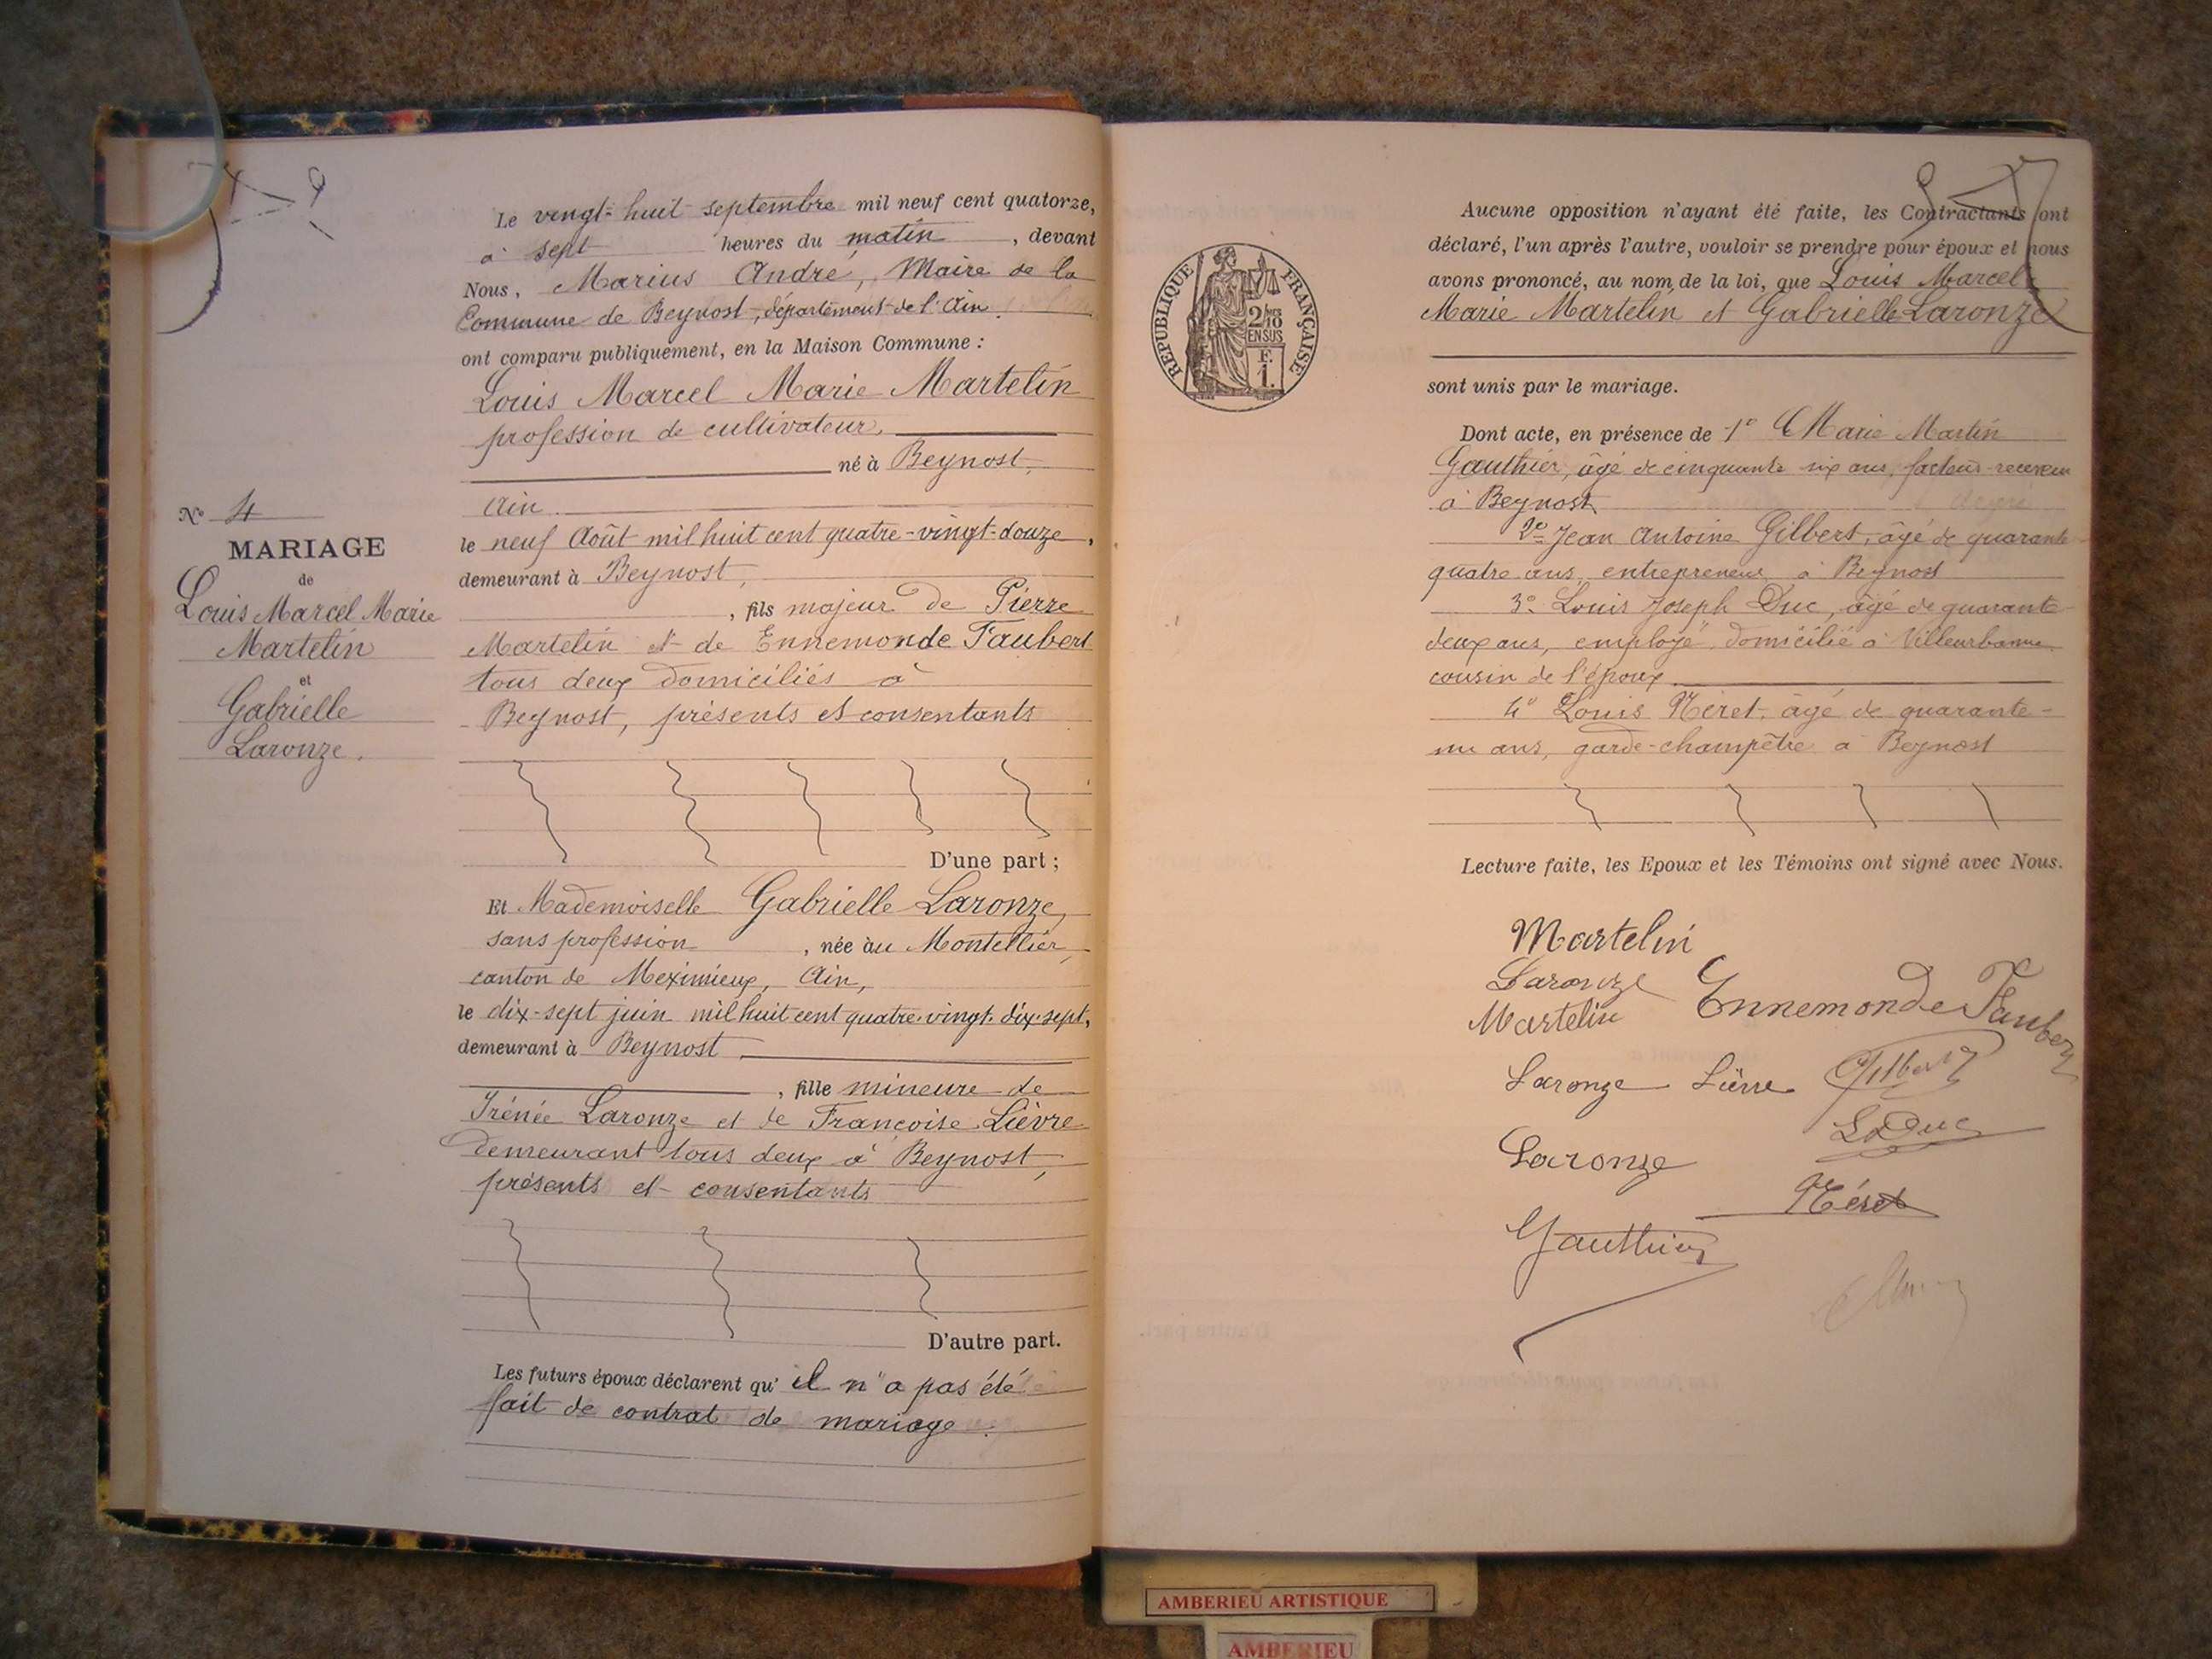 Le vingt-huit septembre mil neuf cent quatorze,
à sept heures du matin, devant
Nous, Marius André, Maire de la
Commune de Beynost, département de l'Ain.
ont comparu publiquement, en la Maison Commune :
Louis Marcel Marie Martelin
profession de cultivateur,
né à Beynost,
Ain
le neuf Août mil huit cent quatre-vingt-douze,
demeurant à Beynost,
, fils majeur de Pierre
Martelin et de Ennemonde Faubert
tous deux domiciliés à
Beynost, présents et consentants
D'une part ;
Et Mademoiselle Gabrielle Laronze,
sans profession, née àu Montellier,
canton de Meximieux, Ain,
le dix-sept juin mil huit cent quatre-vingt-dix-sept,
demeurant à Beynost
, fille mineure de
Irénée Laronze et de Françoise Lièvre
demeurant tous deux à Beynost,
présents et consentants
D'autre part.
Les futurs époux déclarent qu' il n'a pas été
fait de contrat de mariage.
N° 4
MARIAGE
de
Louis Marcel Marie
Martelin
et
Gabrielle
Laronze.
REPUBLIQUE FRANÇAISE
2/10
EN SUS
F.
1.
Aucune opposition n'ayant été faite, les Contractants ont
déclaré, l'un après l'autre, vouloir se prendre pour époux et nous
avons prononcé, au nom de la loi, que Louis Marcel
Marie Martelin et Gabrielle Laronze
sont unis par le mariage.
Dont acte, en présence de 1° Marie Martin
Gauthier, âgé de cinquante six ans, facteur-receveur
à Beynost
2° Jean Antoine Gilbert, âgé de quarante
quatre ans, entrepreneur à Beynost
3° Louis Joseph Duc, âgé de quarante
deux ans, employé, domicilié à Villeurbanne
cousin de l'époux
4° Louis Néret, âgé de quarante-
un ans, garde-champêtre à Beynost
Lecture faite, les Epoux et les Témoins ont signé avec Nous.
Martelin
Laronze
Ennemonde Faubert
Martelin
Laronze Lièvre
Gilbert
LDuc
Laronze
Néret
Gauthier
AMBERIEU ARTISTIQUE
AMBERIEU